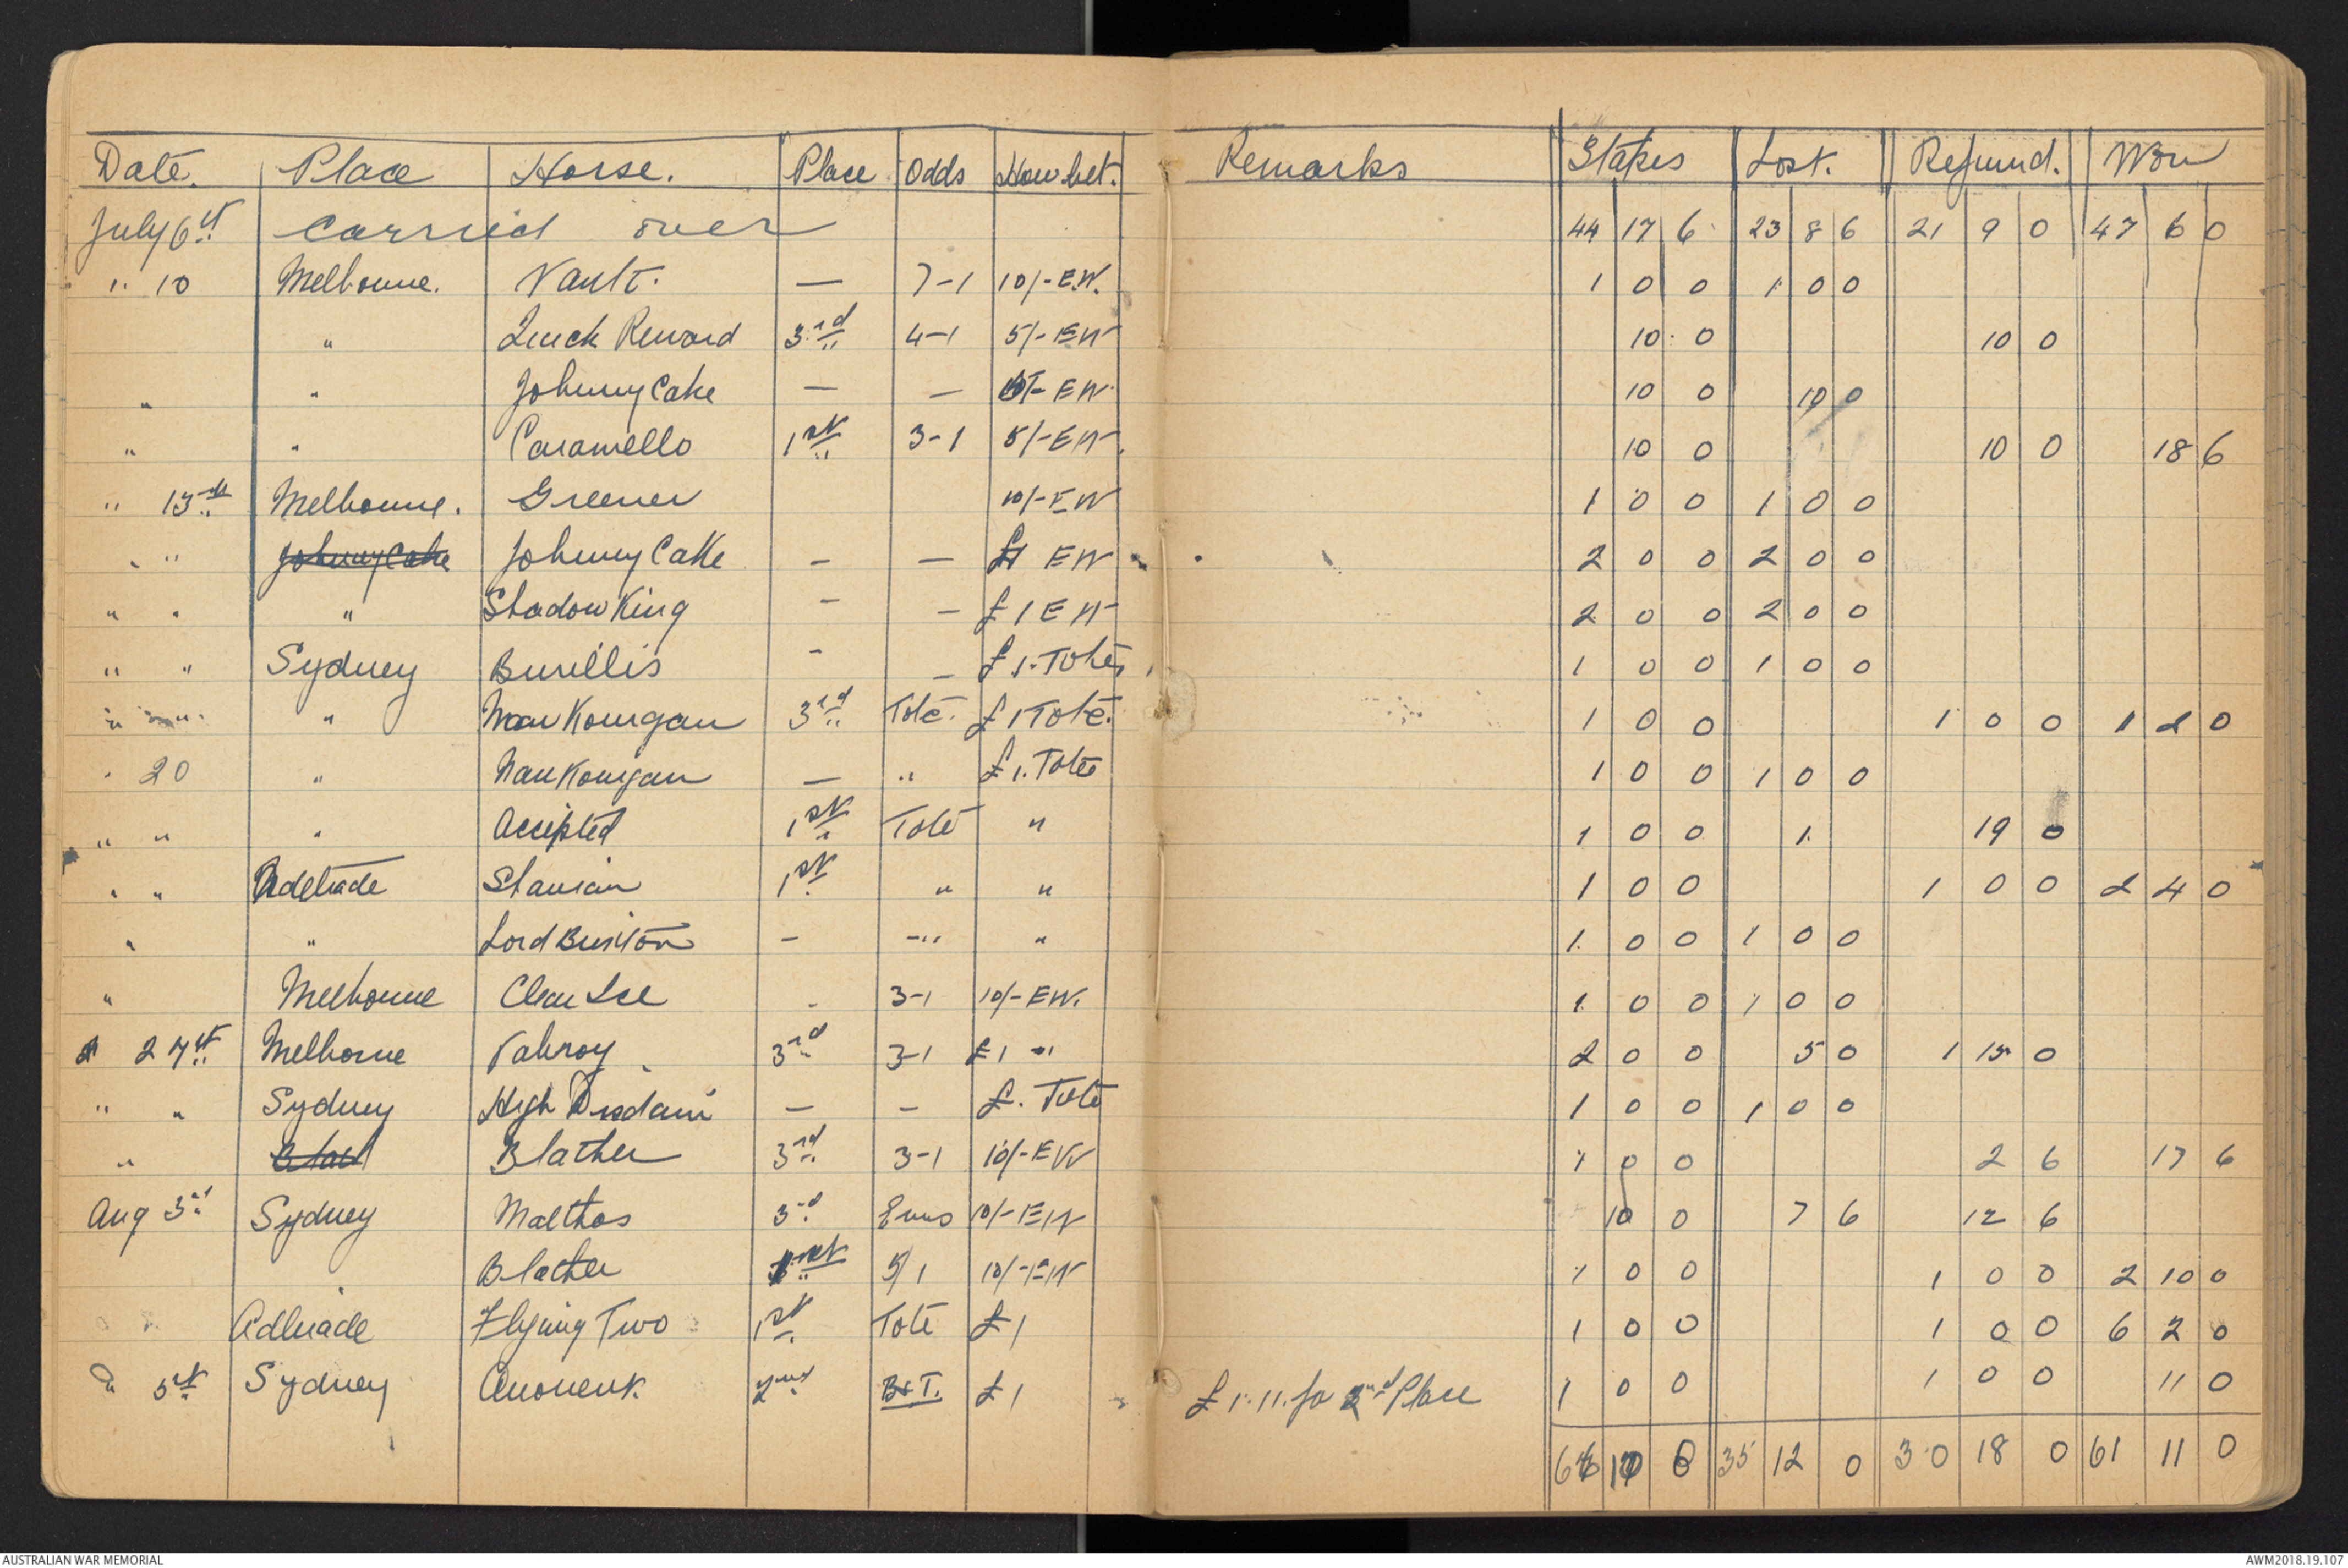 Date. Place Horse. Place Odds How bet. Remarks Stakes Lost. Refund. Won
July 6th Carried over 44 17 6 23 8 6 21 9 0 47 6 0
" 10 Melbourne. Vault. — 7-1 10/- E.W. 1 0 0 1 0 0
" Quick Reward 3rd 4-1 5/- EW 10 0 10 0
" " Johnny Cake — — EW 10 0 10 0
" " Caramello 1st 3-1 5/- EW. 10 0 10 0 18 6
" 13th Melbourne. Greener 10/- EW 1 0 0 1 0 0
" " Johnny Cake Johnny Cake - — £1 EW 2 0 0 2 0 0
" " " Shadow King - — £1 EW 2 0 0 2 0 0
" " Sydney Burillis - - £1. Tote 1 0 0 1 0 0
" " " Nankourgan 3rd Tote. £1 Tote. 1 0 0 1 0 0 1 2 0
" 20 " Nankourgan — " £1. Tote 1 0 0 1 0 0
" " " Accepted 1st Tote " 1 0 0 1. 19 0
" " Adelaide Stanian 1st " " 1 0 0 1 0 0 2 4 0
" " Lord Buxton - -" " 1. 0 0 1 0 0
" Melbourne Clear Ice - 3-1 10/- EW. 1 0 0 1 0 0
" 27th Melborne Valroy 3rd 3-1 £1 " 2 0 0 5 0 1 15 0
" " Sydney High Disdain — — £. Tote 1 0 0 1 0 0
" Blather 3rd 3-1 10/- EW 1 0 0 2 6 17 6
Aug 3rd Sydney Malthos 3rd Evens 10/- EW 10 0 7 6 12 6
Blather 5/1 10/- EW 1 0 0 1 0 0 2 10 0
Adliaide Flying Two 1st Tote £1 1 0 0 1 0 0 6 2 0
" 5th Sydney 2nd B&T. £1 £1.11. for 2nd Place 1 0 0 1 0 0 11 0
35 12 0 30 18 0 61 11 0
AUSTRALIAN WAR MEMORIAL AWM2018.19.107